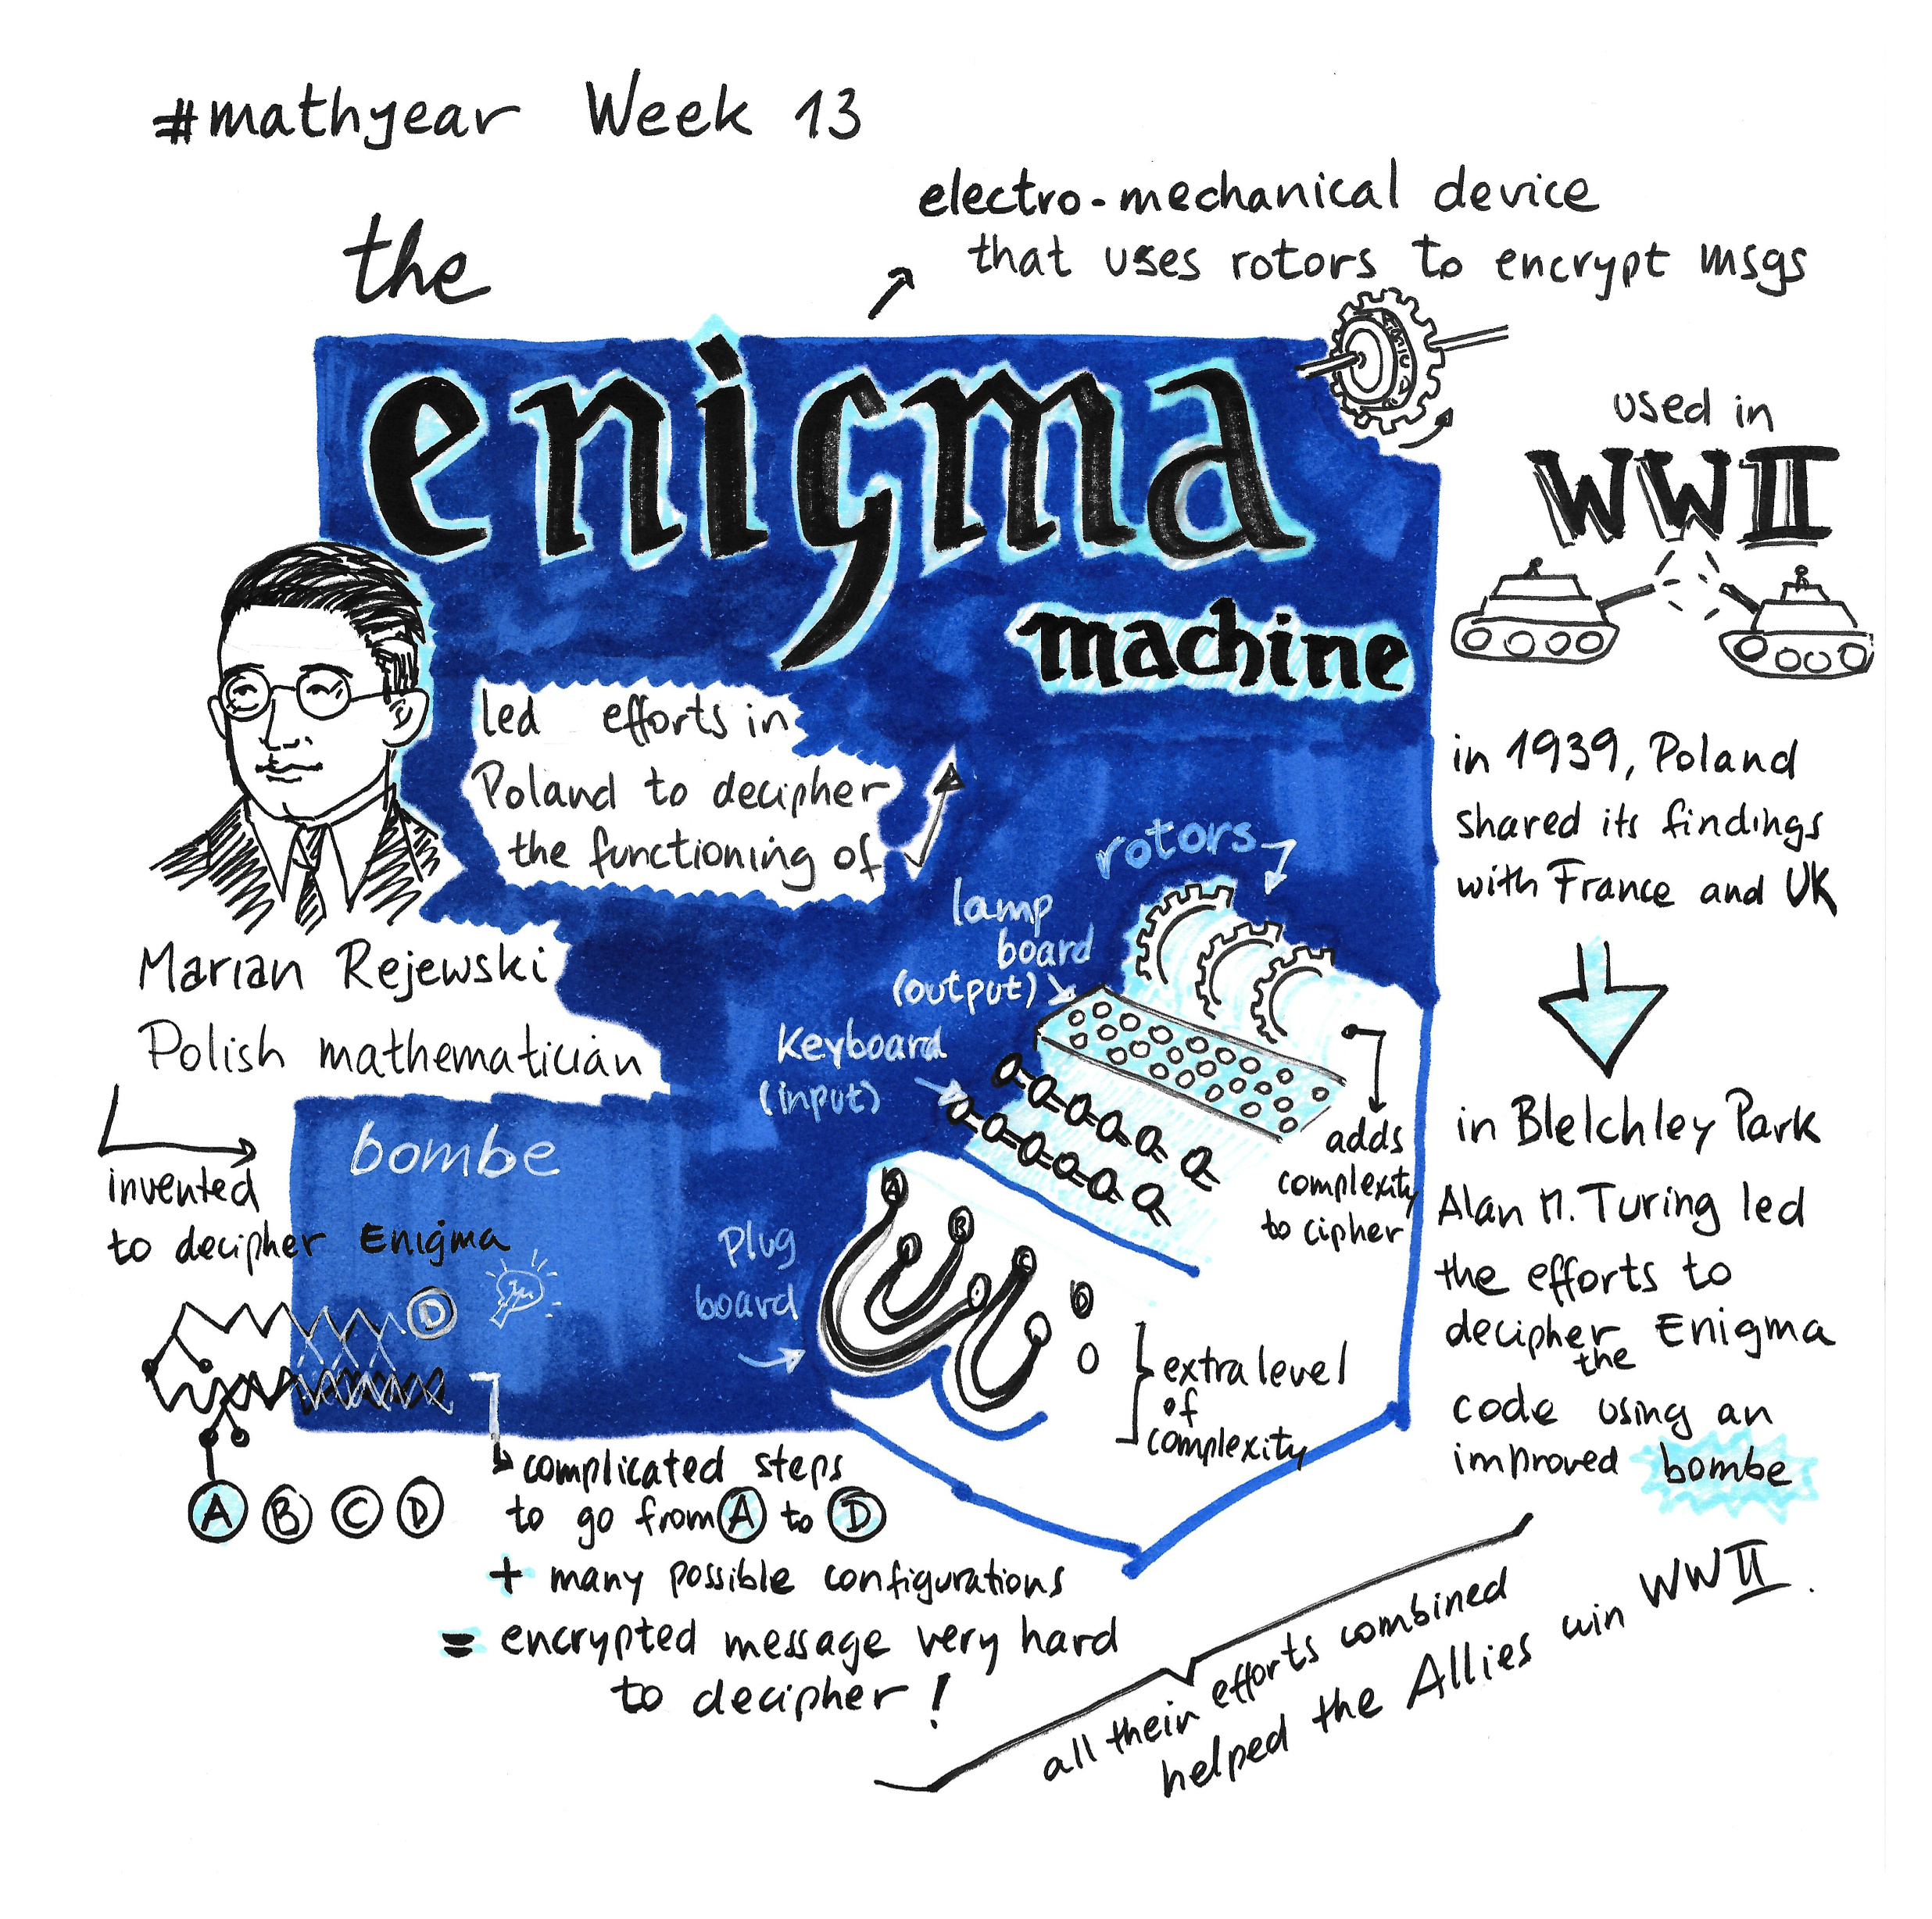 #mathyear Week 13
the
enigma
machine
electro-mechanical device
that uses rotors to encrypt msgs
used in
WWII
led efforts in
Poland to decipher
the functioning of
Marian Rejewski
Polish mathematician
invented
to decipher Enigma
bombe
D
A B C D
complicated steps
to go from A to D
+ many possible configurations
= encrypted message very hard
to decipher!
rotors
lamp
board
(output)
Keyboard
(input)
Plug
board
A
B
C
D
adds
complexity
to cipher
extra level
of
complexity
in 1939, Poland
shared its findings
with France and UK
in Blelchley Park
Alan M. Turing led
the efforts to
decipher Enigma
the
code using an
improved bombe
all their efforts combined
helped the Allies win WWII.